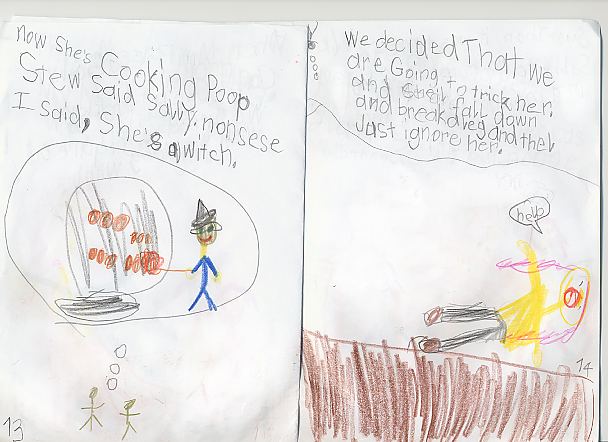 now She's Cooking Poop
Stew Said Savvy. nonsese
I Said, She's a witch.
13
we decided That we
are Going to trick her.
and She'll fall down
and break a leg and then
Just ignore her.
help
14